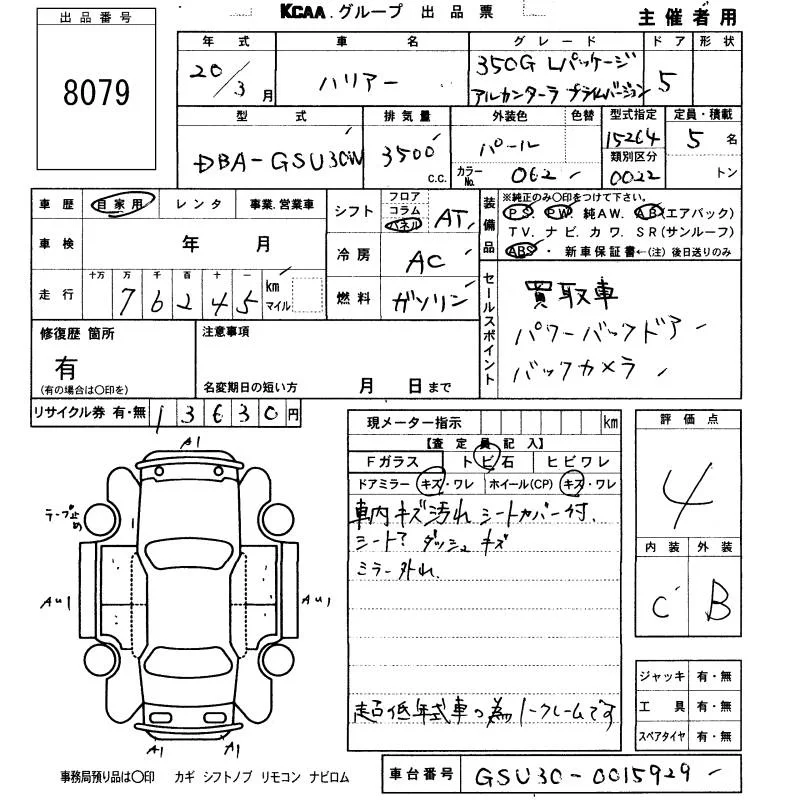 KCAA.グループ 出品票
主催者用
出品番号
8079
年式 車名 グレード ドア 形状
20/3月 ハリアー 350G Lパッケージ 5
アルカンターラ プライムバージョン
型式 排気量 外装色 色替 型式指定 定員・積載
DBA-GSU30W 3500 c.c. パール 15264 5名
カラーNo. 062 類別区分 0022 トン
車歴 自家用 レンタ 事業.営業車
シフト フロア コラム パネル AT
装備品 ※純正のみ○印をつけて下さい。
PS PW 純AW. AB(エアバック)
TV. ナビ. カワ. SR(サンルーフ)
ABS・新車保証書←(注)後日送りのみ
車検 年 月
冷房 AC
走行 十万 万 千 百 十 一
76245 km マイル
燃料 ガソリン
セールスポイント
買取車
パワーバックドア
バックカメラ
修復歴 箇所
有
(有の場合は○印を)
注意事項
名変期日の短い方 月 日まで
リサイクル券 有・無 13630円
現メーター指示 km
【査定員記入】
Fガラス トビ石 ヒビワレ
ドアミラー キズ・ワレ ホイール(CP) キズ・ワレ
車内キズ汚れ シートカバー付.
シート? ダッシュ キズ
ミラー外れ.
超低年式車の為ノークレームです
評価点
4
内装 外装
C B
ジャッキ 有・無
工具 有・無
スペアタイヤ 有・無
A1
テープ止め
AU1 AU1
A1 A1
事務局預り品は○印 カギ シフトノブ リモコン ナビロム
車台番号 GSU30-0015929